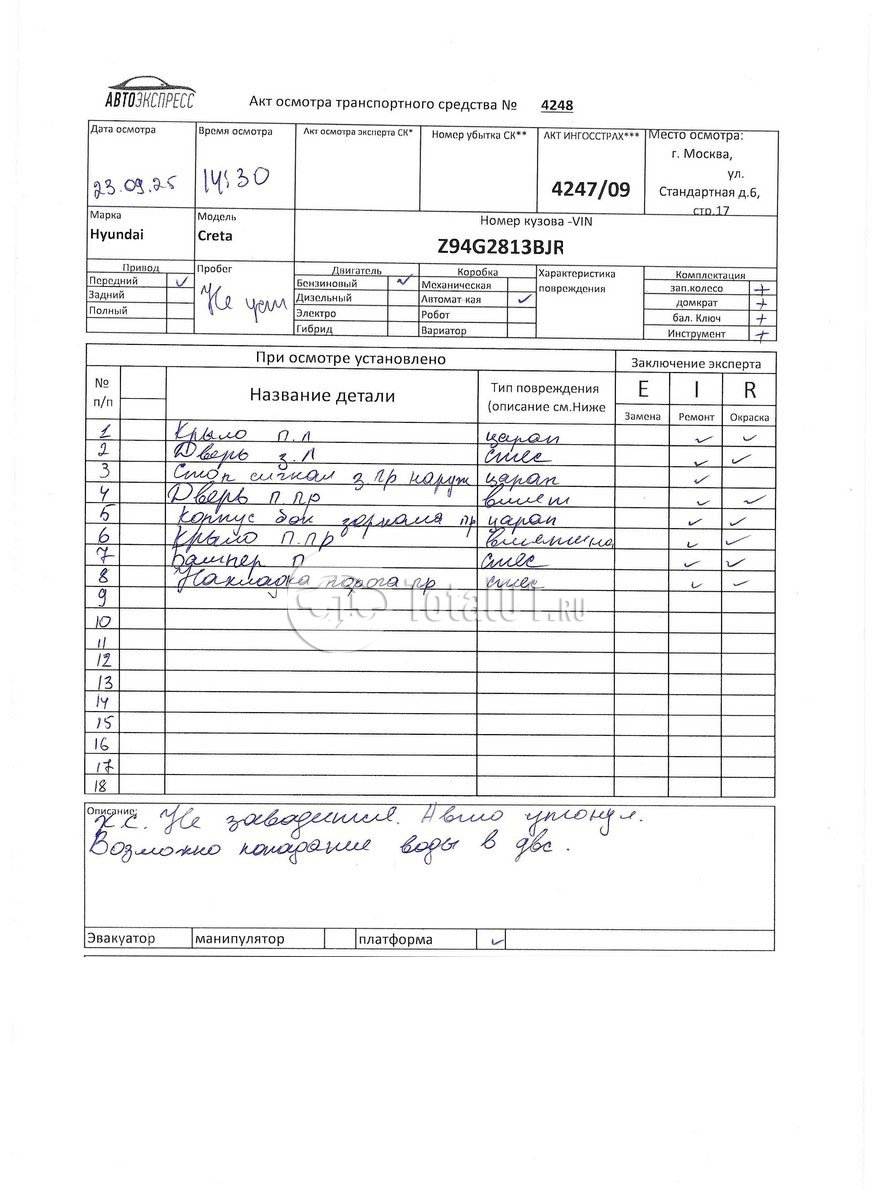 АВТОЭКСПРЕСС
Акт осмотра транспортного средства № 4248
Дата осмотра
23.09.25
Время осмотра
14:30
Акт осмотра эксперта СК*
Номер убытка СК**
АКТ ИНГОССТРАХ***
4247/09
Место осмотра:
г. Москва,
ул.
Стандартная д.6,
стр.17
Марка
Hyundai
Модель
Creta
Номер кузова -VIN
Z94G2813BJR
Привод
Передний ✓
Задний
Полный
Пробег
Не уст
Двигатель
Бензиновый ✓
Дизельный
Электро
Гибрид
Коробка
Механическая
Автомат-кая ✓
Робот
Вариатор
Характеристика
повреждения
Комплектация
зап.колесо +
домкрат +
бал. Ключ +
Инструмент +
При осмотре установлено
Заключение эксперта
№
п/п
Название детали
Тип повреждения
(описание см.Ниже
E I R
Замена Ремонт Окраска
1 Крыло п.л царап ✓ ✓
2 Дверь з.л стес ✓ ✓
3 Стоп сигнал з.пр наруж царап ✓
4 Дверь п.пр вмят ✓ ✓
5 Корпус бок зеркала пр царап ✓ ✓
6 Крыло п.пр вмятина ✓ ✓
7 Бампер п стес ✓ ✓
8 Накладка порога пр стес ✓ ✓
9
10
11
12
13
14
15
16
17
18
TotalOT.RU
Описание:
х.с. Не заводится. Авто утонул.
Возможно попадание воды в двс.
Эвакуатор манипулятор платформа ✓